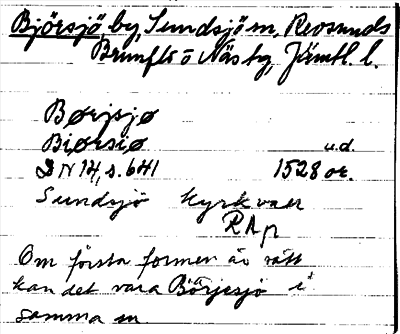 Björsjö, by Sundsjö sn, Revsunds
Brunflo o Näs tg, Jämtl. l.
Børjsjø
Biørsiø u.d.
DN 14, s. 641 1528 or.
Sundsjö kyrkvaer
RAp
Om första formen är rätt
kan det vara Börjesjö i
samma sn